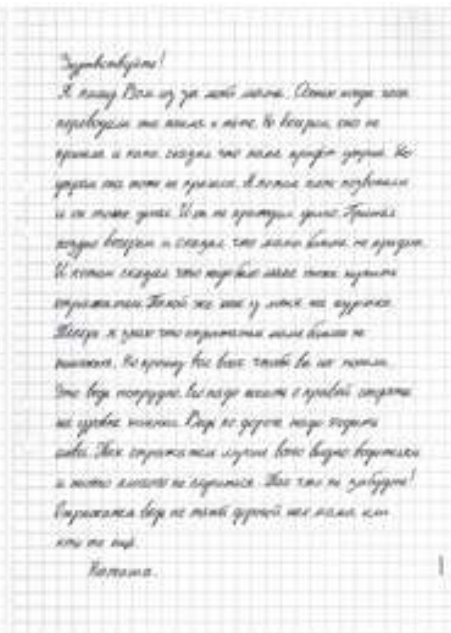 Здравствуйте!
Я пишу Вам из за моей мамы. Осенью когда часы
переводили она пошла к тёте. Но вечером она не
пришла и папа сказал что мама придёт утром. Но
утром она тоже не пришла. А потом папе позвонили
и он тоже ушел. И он не приходил долго. Пришел
поздно вечером и сказал что мама больше не придет.
И потом сказал что надо было маме тоже купить
отражатель. Такой же как у меня на курточке.
Теперь я знаю что отражатель маме больше не
поможет. Но прошу Вас всех чтоб вы их носили.
Это ведь нетрудно. Его надо носить с правой стороны
на уровне коленки. Ведь по дороге надо ходить
слева. Так отражатель лучше всего видно водителям
и тогда ничего не случится. Так что не забудьте!
Отражатель ведь не такой дорогой как мама или
кто то ещё.
Наташа.